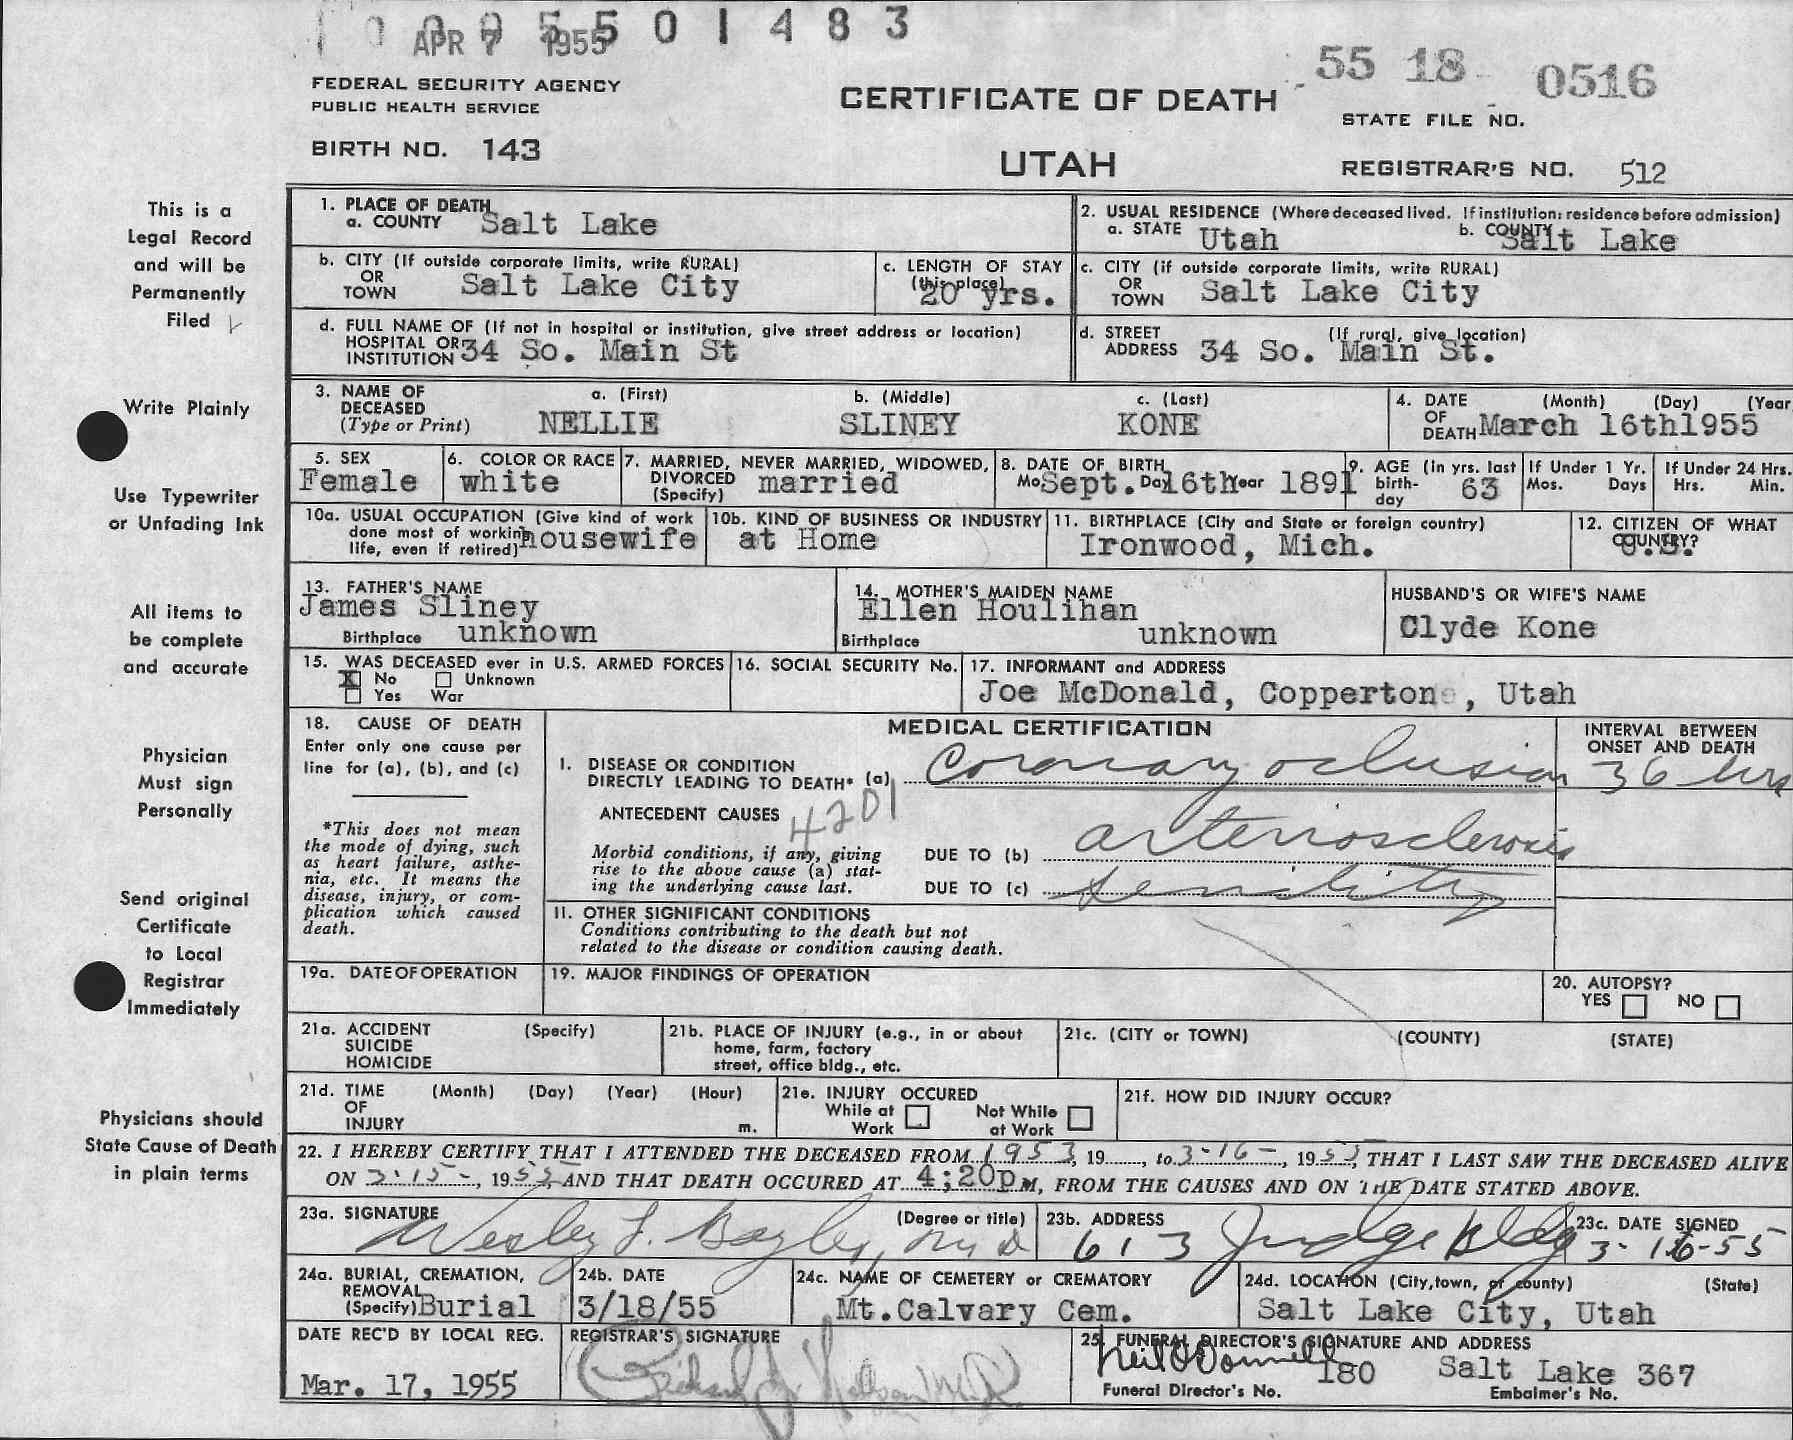 APR 7 1955
5 0 1 4 8 3
55 18 0516
FEDERAL SECURITY AGENCY
PUBLIC HEALTH SERVICE
CERTIFICATE OF DEATH
STATE FILE NO.
BIRTH NO. 143
UTAH
REGISTRAR'S NO. 512
This is a
Legal Record
and will be
Permanently
Filed
Write Plainly
Use Typewriter
or Unfading Ink
All items to
be complete
and accurate
Physician
Must sign
Personally
Send original
Certificate
to Local
Registrar
Immediately
Physicians should
State Cause of Death
in plain terms
1. PLACE OF DEATH
a. COUNTY Salt Lake
2. USUAL RESIDENCE (Where deceased lived. If institution: residence before admission)
a. STATE Utah b. COUNTY Salt Lake
b. CITY (If outside corporate limits, write RURAL)
OR
TOWN Salt Lake City
c. LENGTH OF STAY
(this place)
20 yrs.
c. CITY (if outside corporate limits, write RURAL)
OR
TOWN Salt Lake City
d. FULL NAME OF (If not in hospital or institution, give street address or location)
HOSPITAL OR
INSTITUTION 34 So. Main St
d. STREET (If rural, give location)
ADDRESS 34 So. Main St.
3. NAME OF
DECEASED
(Type or Print)
a. (First) b. (Middle) c. (Last)
NELLIE SLINEY KONE
4. DATE (Month) (Day) (Year
OF
DEATH March 16th1955
5. SEX
Female
6. COLOR OR RACE
white
7. MARRIED, NEVER MARRIED, WIDOWED,
DIVORCED
(Specify) married
8. DATE OF BIRTH
Mo Sept. Day 16th Year 1891
9. AGE (in yrs. last
birth-
day 63
If Under 1 Yr.
Mos. Days
If Under 24 Hrs.
Hrs. Min.
10a. USUAL OCCUPATION (Give kind of work
done most of working
life, even if retired) housewife
10b. KIND OF BUSINESS OR INDUSTRY
at Home
11. BIRTHPLACE (City and State or foreign country)
Ironwood, Mich.
12. CITIZEN OF WHAT
COUNTRY?
U.S.
13. FATHER'S NAME
James Sliney
Birthplace unknown
14. MOTHER'S MAIDEN NAME
Ellen Houlihan
Birthplace unknown
HUSBAND'S OR WIFE'S NAME
Clyde Kone
15. WAS DECEASED ever in U.S. ARMED FORCES
X No Unknown
Yes War
16. SOCIAL SECURITY No.
17. INFORMANT and ADDRESS
Joe McDonald, Coppertone, Utah
18. CAUSE OF DEATH
Enter only one cause per
line for (a), (b), and (c)
*This does not mean
the mode of dying, such
as heart failure, asthe-
nia, etc. It means the
disease, injury, or com-
plication which caused
death.
MEDICAL CERTIFICATION
INTERVAL BETWEEN
ONSET AND DEATH
I. DISEASE OR CONDITION
DIRECTLY LEADING TO DEATH* (a) Coronary oclusion 36 hrs
ANTECEDENT CAUSES 4201
Morbid conditions, if any, giving
rise to the above cause (a) stat-
ing the underlying cause last.
DUE TO (b) arteriosclerosis
DUE TO (c) senility
II. OTHER SIGNIFICANT CONDITIONS
Conditions contributing to the death but not
related to the disease or condition causing death.
19a. DATE OF OPERATION
19. MAJOR FINDINGS OF OPERATION
20. AUTOPSY?
YES NO
21a. ACCIDENT (Specify)
SUICIDE
HOMICIDE
21b. PLACE OF INJURY (e.g., in or about
home, farm, factory
street, office bldg., etc.
21c. (CITY or TOWN) (COUNTY) (STATE)
21d. TIME (Month) (Day) (Year) (Hour)
OF
INJURY m.
21e. INJURY OCCURED
While at Work Not While at Work
21f. HOW DID INJURY OCCUR?
22. I HEREBY CERTIFY THAT I ATTENDED THE DECEASED FROM 1953, 19......, to 3-16-, 1955, THAT I LAST SAW THE DECEASED ALIVE
ON 3-15-, 1955, AND THAT DEATH OCCURED AT 4;20p M, FROM THE CAUSES AND ON THE DATE STATED ABOVE.
23a. SIGNATURE (Degree or title)
Wesley F. Bayley, M D
23b. ADDRESS
613 Judge Bldg
23c. DATE SIGNED
3-16-55
24a. BURIAL, CREMATION,
REMOVAL
(Specify) Burial
24b. DATE
3/18/55
24c. NAME OF CEMETERY or CREMATORY
Mt.Calvary Cem.
24d. LOCATION (City, town, or county) (State)
Salt Lake City, Utah
DATE REC'D BY LOCAL REG.
Mar. 17, 1955
REGISTRAR'S SIGNATURE
25. FUNERAL DIRECTOR'S SIGNATURE AND ADDRESS
Neil O'Donnell 180 Salt Lake 367
Funeral Director's No. Embalmer's No.